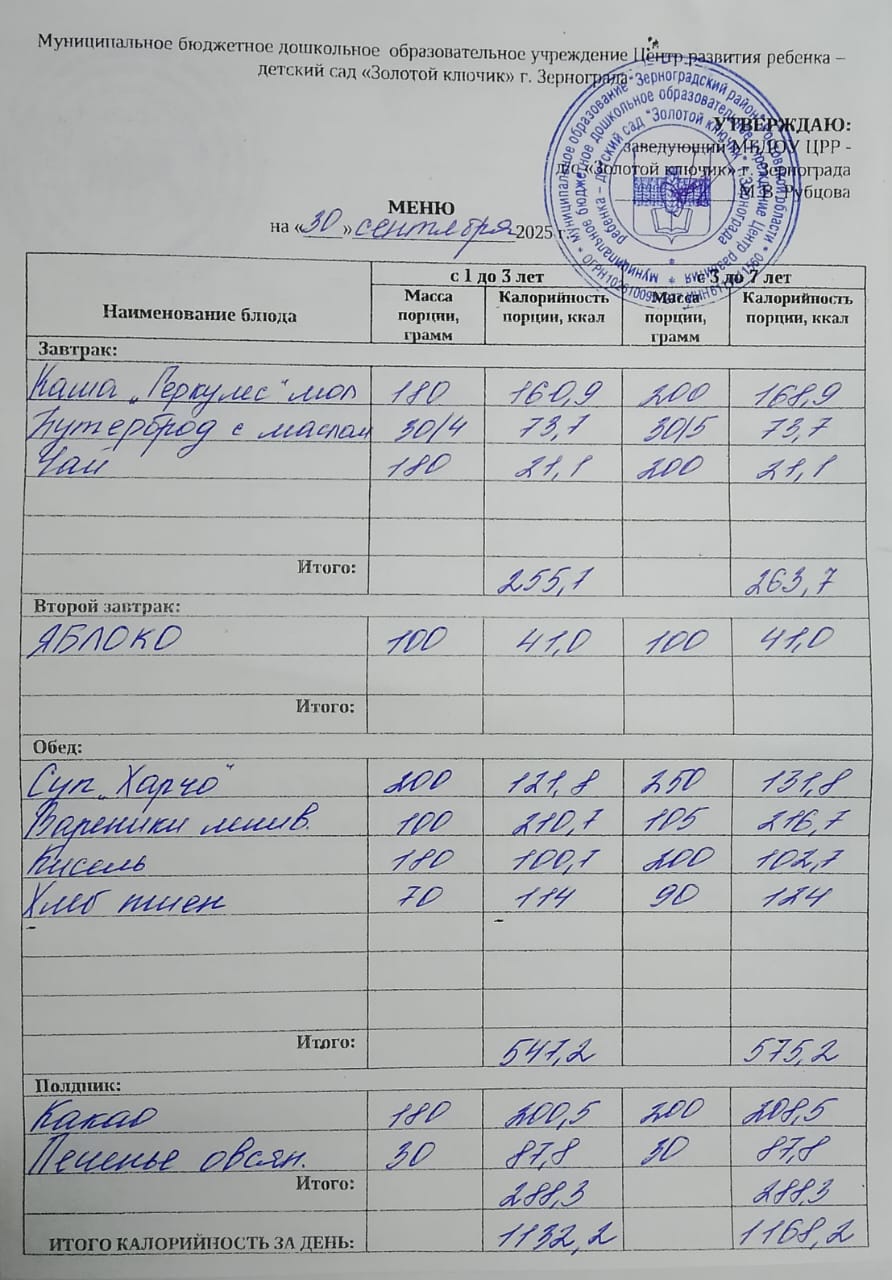 Муниципальное бюджетное дошкольное образовательное учреждение Центр развития ребенка –
детский сад «Золотой ключик» г. Зернограда
УТВЕРЖДАЮ:
заведующий МБДОУ ЦРР -
д/с «Золотой ключик» г. Зернограда
М.В. Рубцова
МЕНЮ
на «30» сентября 2025 г.
Наименование блюда с 1 до 3 лет с 3 до 7 лет
Масса порции, грамм Калорийность порции, ккал Масса порции, грамм Калорийность порции, ккал
Завтрак:
Каша „Геркулес“ мол 180 160,9 200 168,9
Бутерброд с маслом 30/4 73,7 30/5 73,7
Чай 180 21,1 200 21,1
Итого: 255,7 263,7
Второй завтрак:
ЯБЛОКО 100 41,0 100 41,0
Итого:
Обед:
Суп „Харчо“ 200 121,8 250 131,8
Вареники ленив. 100 210,7 105 216,7
Кисель 180 100,7 200 102,7
Хлеб пшен 70 114 90 124
Итого: 547,2 575,2
Полдник:
Какао 180 200,5 200 208,5
Печенье овсян. 30 87,8 30 87,8
Итого: 288,3 288,3
ИТОГО КАЛОРИЙНОСТЬ ЗА ДЕНЬ: 1132,2 1168,2